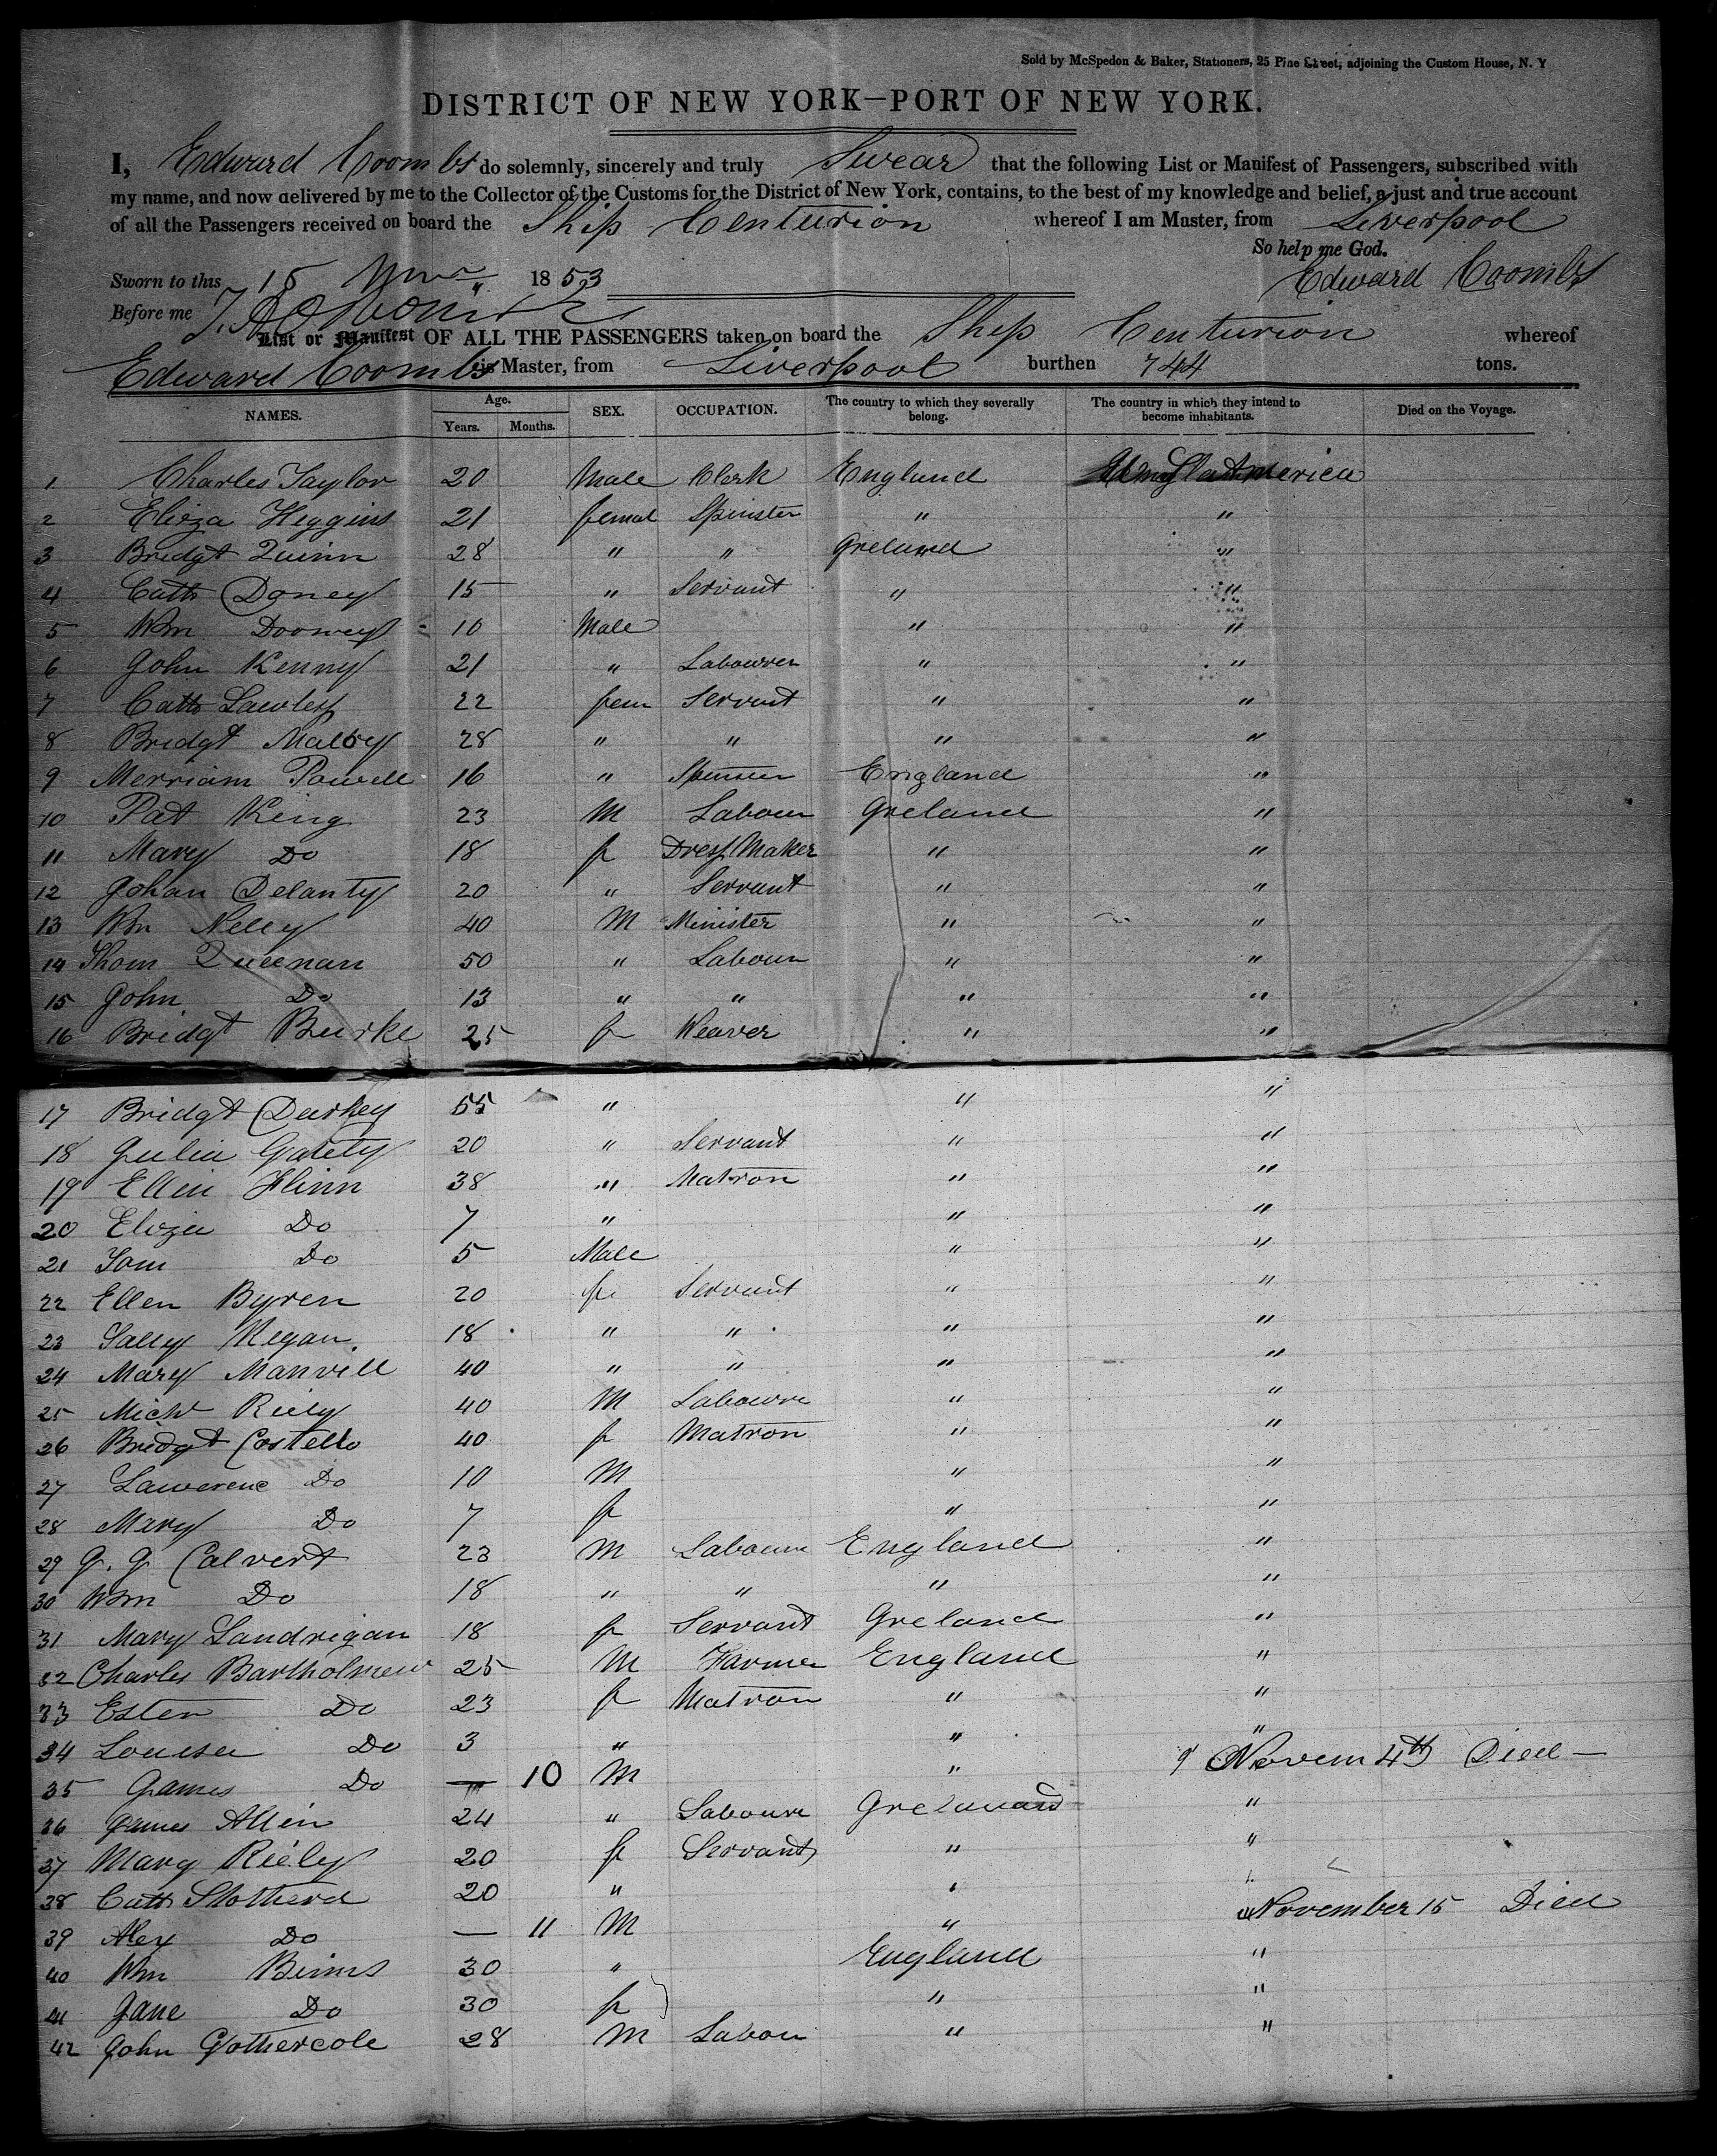 Sold by McSpedon & Baker, Stationers, 25 Pine Street, adjoining the Custom House, N. Y
DISTRICT OF NEW YORK—PORT OF NEW YORK.
I, Edward Coombs do solemnly, sincerely and truly Swear that the following List or Manifest of Passengers, subscribed with
my name, and now delivered by me to the Collector of the Customs for the District of New York, contains, to the best of my knowledge and belief, a just and true account
of all the Passengers received on board the Ship Centurion whereof I am Master, from Liverpool
So help me God.
Sworn to this 18 1853 Edward Coombs
Before me
List or Manifest OF ALL THE PASSENGERS taken on board the Ship Centurion whereof
Edward Coombs is Master, from Liverpool burthen 744 tons.
NAMES. Age. Years. Months. SEX. OCCUPATION. The country to which they severally belong. The country in which they intend to become inhabitants. Died on the Voyage.
1 Charles Taylor 20 Male Clerk England America
2 Eliza Higgins 21 femal Spinster " "
3 Bridgt Quinn 28 " " Ireland "
4 Cath Doney 15 " Servant " "
5 Wm Doowey 10 Male " "
6 John Kenny 21 " Labourer " "
7 Cath Lawless 22 fem Servant " "
8 Bridgt Maloy 28 " " " "
9 Merriam Powell 16 " England "
10 Pat King 23 M Labour Ireland "
11 Mary Do 18 f Dress Maker " "
12 Johan Delanty 20 " Servant " "
13 Wm Neley 40 M Minister " "
14 Thom Queenan 50 " Labour " "
15 John Do 13 " " " "
16 Bridgt Burke 25 f Weaver " "
17 Bridgt Durkey 55 " " "
18 Julia Gately 20 " Servant " "
19 Ellin Flinn 38 " Matron " "
20 Eliza Do 7 " " "
21 Tom Do 5 Male " "
22 Ellen Byren 20 f Servant " "
23 Sally Regan 18 " " " "
24 Mary Manvill 40 " " " "
25 Michl Riely 40 M Laboure " "
26 Bridgt Costello 40 f Matron " "
27 Lawerenc Do 10 M " "
28 Mary Do 7 f " "
29 J. J. Calvert 23 M Laboure England "
30 Wm Do 18 " " " "
31 Mary Landrigan 18 f Servant Ireland "
32 Charles Bartholmew 25 M Farmer England "
33 Ester Do 23 f Matron " "
34 Louisa Do 3 " " "
35 James Do — 10 M " Novem 4th Died —
36 James Allen 24 " Laboure Ireland "
37 Mary Riely 20 f Servant " "
38 Cath Stotherd 20 " "
39 Alex Do — 11 M " November 15 Died
40 Wm Binns 30 " England "
41 Jane Do 30 f " "
42 John Gothercole 28 M Labou " "